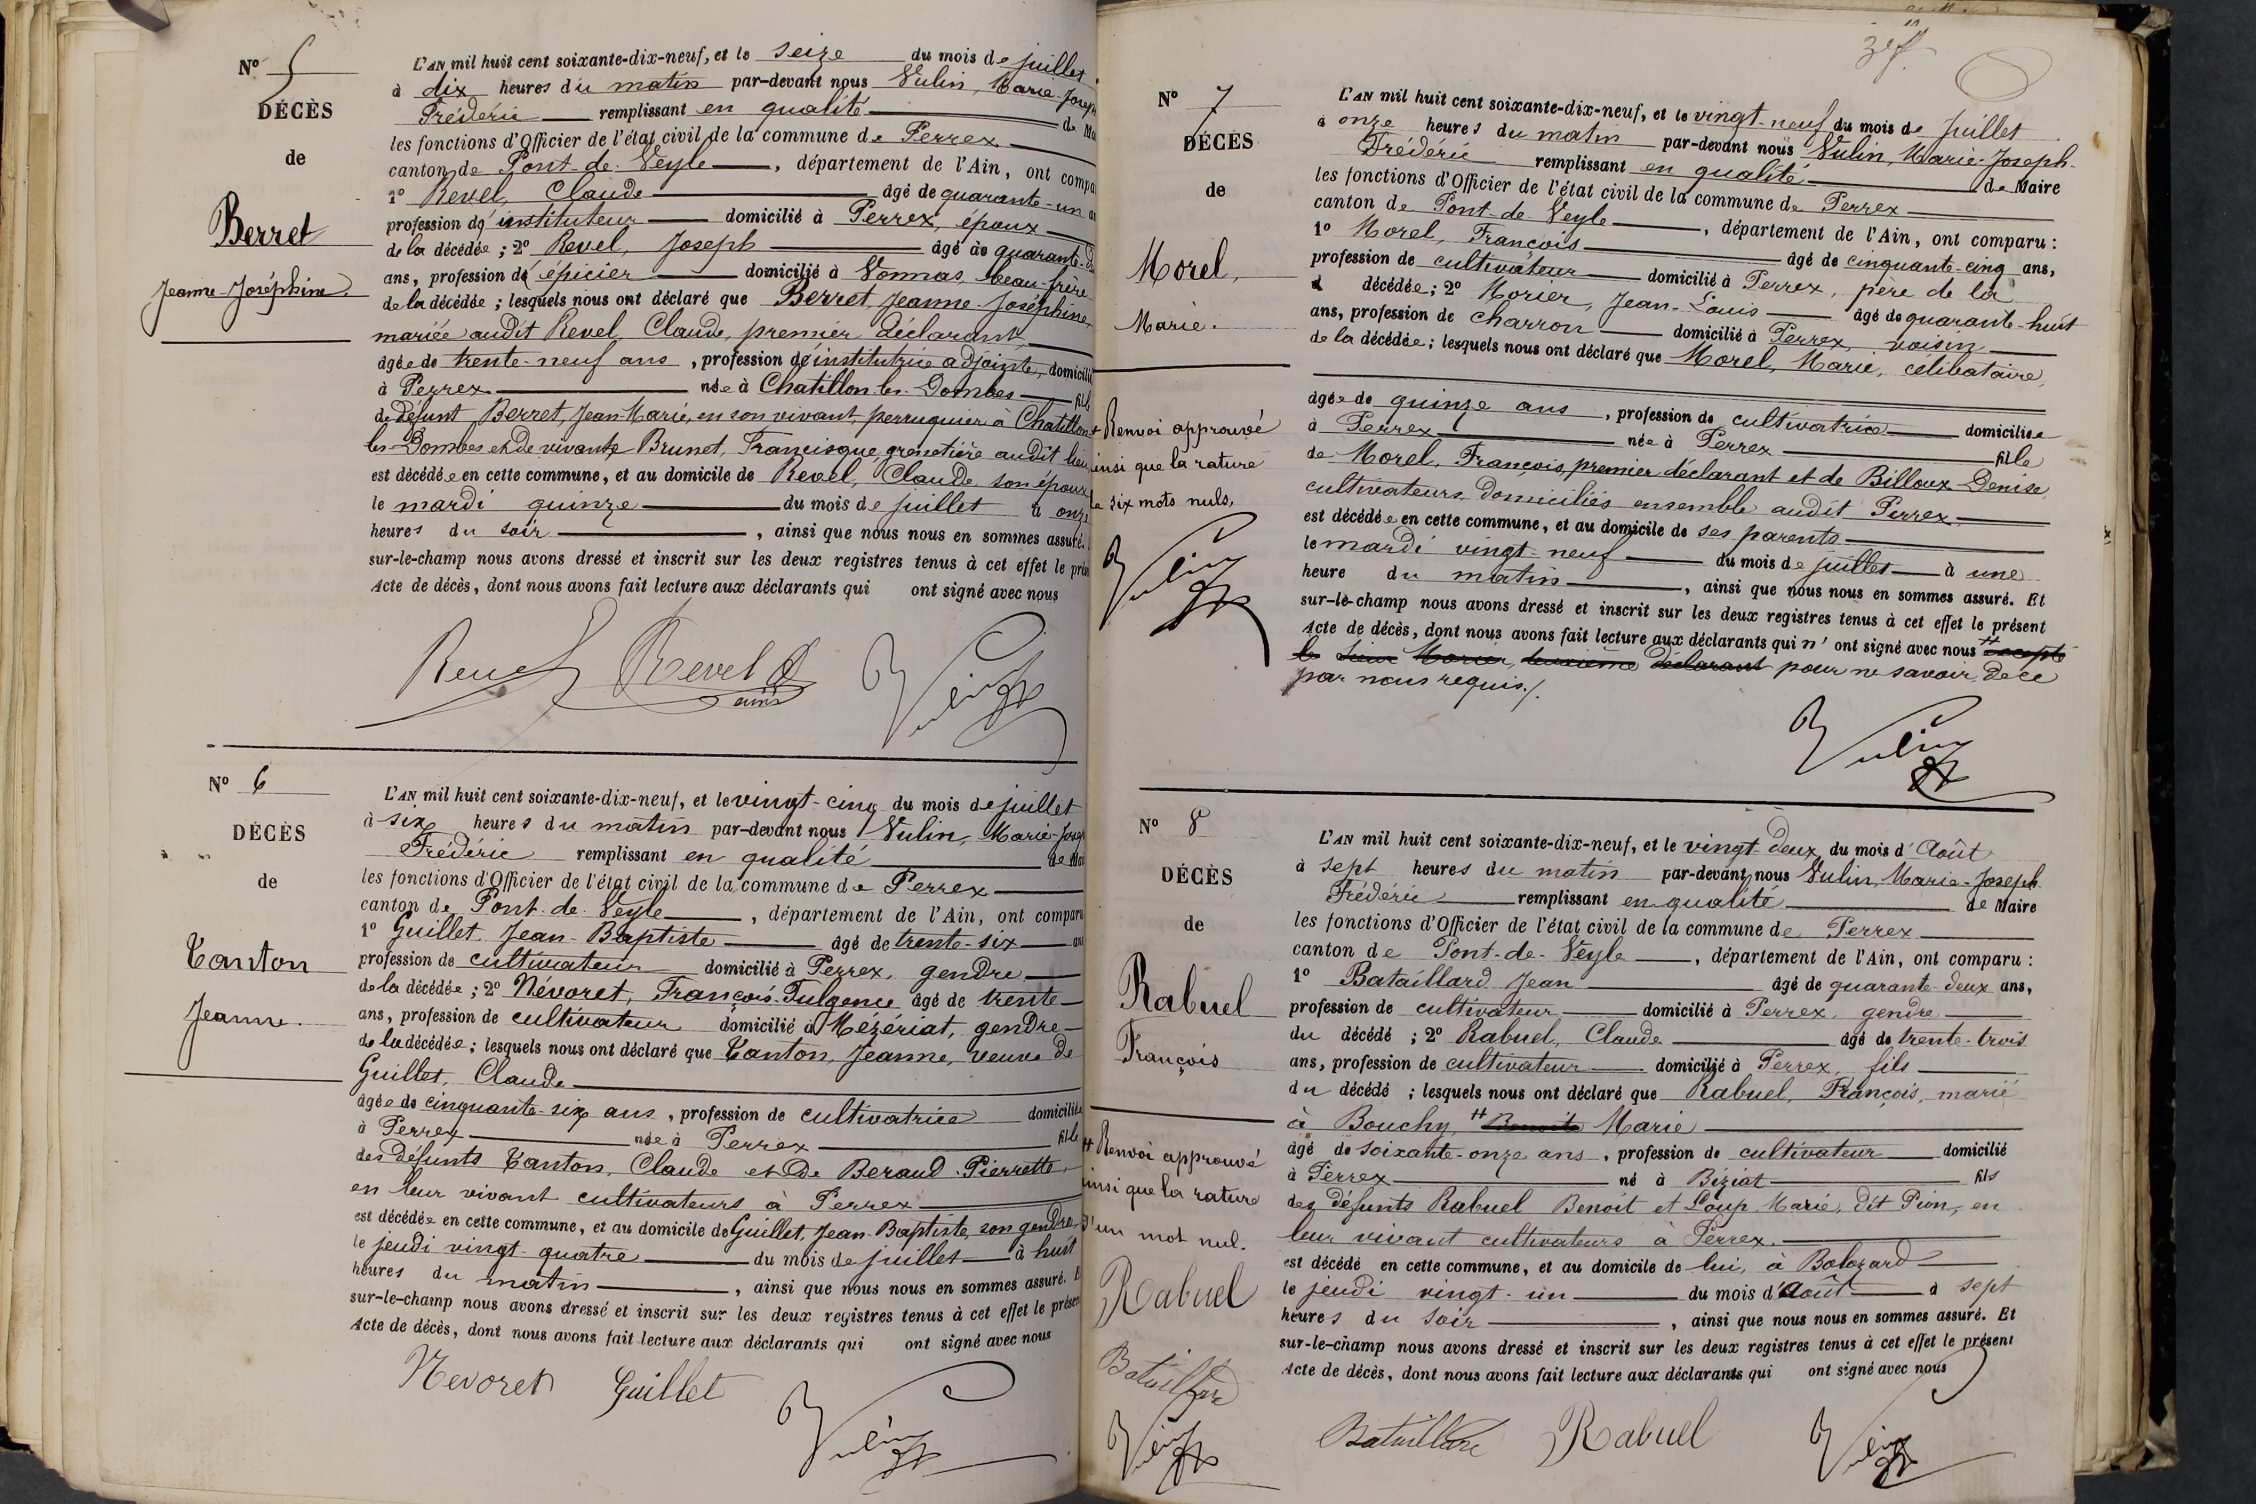 N° 5
DÉCÈS
de
Berret
Jeanne-Joséphine.
L'AN mil huit cent soixante-dix-neuf, et le seize du mois de juillet
à dix heures du matin par-devant nous Vulin, Marie-Joseph
Frédéric remplissant en qualité de Ma
les fonctions d'Officier de l'état civil de la commune de Perrex
canton de Pont-de-Veyle, département de l'Ain, ont compa
1° Revel, Claude âgé de quarante-un a
profession d'instituteur domicilié à Perrex, époux
de la décédée ; 2° Revel, Joseph âgé de quarante-
ans, profession d'épicier domicilié à Vonnas, beau-frère
de la décédée ; lesquels nous ont déclaré que Berret, Jeanne-Joséphine,
mariée audit Revel, Claude, premier déclarant,
âgée de trente-neuf ans, profession d'institutrice adjointe, domicilié
à Perrex née à Chatillon-les-Dombes fille
de défunt Berret, Jean-Marie, en son vivant, perruquier à Chatillon
les-Dombes et de vivante Brunet, Francisque, grenetière audit lieu,
est décédée en cette commune, et au domicile de Revel, Claude son époux
le mardi quinze du mois de juillet à onze
heures du soir, ainsi que nous nous en sommes assuré.
sur-le-champ nous avons dressé et inscrit sur les deux registres tenus à cet effet le prése
Acte de décès, dont nous avons fait lecture aux déclarants qui ont signé avec nous
Revel Revel ainé Vulin
N° 6
DÉCÈS
de
Tanton
Jeanne.
L'AN mil huit cent soixante-dix-neuf, et le vingt-cinq du mois de juillet
à six heures du matin par-devant nous Vulin, Marie-Josep
Frédéric remplissant en qualité de Mai
les fonctions d'Officier de l'état civil de la commune de Perrex
canton de Pont-de-Veyle, département de l'Ain, ont comparu
1° Guillet Jean-Baptiste âgé de trente-six an
profession de cultivateur domicilié à Perrex, gendre
de la décédée ; 2° Névoret, François-Fulgence âgé de trente
ans, profession de cultivateur domicilié à Mézériat, gendre
de la décédée ; lesquels nous ont déclaré que Tanton, Jeanne, veuve de
Guillet, Claude
âgée de cinquante-six ans, profession de cultivatrice domiciliée
à Perrex née à Perrex fille
des défunts Tanton, Claude et de Beraud Pierrette,
en leur vivant cultivateurs à Perrex
est décédée en cette commune, et au domicile de Guillet, Jean-Baptiste, son gendre,
le jeudi vingt-quatre du mois de juillet à huit
heures du matin, ainsi que nous nous en sommes assuré. E
sur-le-champ nous avons dressé et inscrit sur les deux registres tenus à cet effet le présen
Acte de décès, dont nous avons fait lecture aux déclarants qui ont signé avec nous
Nevoret Guillet Vulin
N° 7
DÉCÈS
de
Morel,
Marie.
L'AN mil huit cent soixante-dix-neuf, et le vingt-neuf du mois de juillet
à onze heures du matin par-devant nous Vulin, Marie-Joseph-
Frédéric remplissant en qualité de Maire
les fonctions d'Officier de l'état civil de la commune de Perrex
canton de Pont-de-Veyle, département de l'Ain, ont comparu :
1° Morel, François âgé de cinquante-cinq ans,
profession de cultivateur domicilié à Perrex, père de la
décédée ; 2° Morier, Jean-Louis âgé de quarante-huit
ans, profession de charron domicilié à Perrex, voisin
de la décédée ; lesquels nous ont déclaré que Morel, Marie, célibataire,
âgée de quinze ans, profession de cultivatrice domiciliée
à Perrex née à Perrex fille
de Morel, François, premier déclarant et de Billoux Denise
cultivateurs domiciliés ensemble audit Perrex
est décédée en cette commune, et au domicile de ses parents
le mardi vingt-neuf du mois de juillet à une
heure du matin, ainsi que nous nous en sommes assuré. Et
sur-le-champ nous avons dressé et inscrit sur les deux registres tenus à cet effet le présent
Acte de décès, dont nous avons fait lecture aux déclarants qui n'ont signé avec nous excepté
le sieur Morier, deuxième déclarant pour ne savoir, de ce
par nous requis./.
Vulin
Renvoi approuvé
ainsi que la rature
de six mots nuls.
Vulin
N° 8
DÉCÈS
de
Rabuel
François
L'AN mil huit cent soixante-dix-neuf, et le vingt-deux du mois d'Août
à sept heures du matin par-devant nous Vulin, Marie-Joseph
Frédéric remplissant en qualité de Maire
les fonctions d'Officier de l'état civil de la commune de Perrex
canton de Pont-de-Veyle, département de l'Ain, ont comparu :
1° Bataillard Jean âgé de quarante-deux ans,
profession de cultivateur domicilié à Perrex, gendre
du décédé ; 2° Rabuel, Claude âgé de trente-trois
ans, profession de cultivateur domicilié à Perrex, fils
du décédé ; lesquels nous ont déclaré que Rabuel, François, marié
à Bouchy, Benoite Marie
âgé de soixante-onze ans, profession de cultivateur domicilié
à Perrex né à Biziat fils
des défunts Rabuel Benoit et Loup Marie, dit Pion, en
leur vivant cultivateurs à Perrex.
est décédé en cette commune, et au domicile de lui, à Bolozard
le jeudi vingt-un du mois d'Août à sept
heures du soir, ainsi que nous nous en sommes assuré. Et
sur-le-champ nous avons dressé et inscrit sur les deux registres tenus à cet effet le présent
Acte de décès, dont nous avons fait lecture aux déclarants qui ont signé avec nous
Bataillard Rabuel Vulin
Renvoi approuvé
ainsi que la rature
d'un mot nul.
Rabuel
Bataillard
Vulin